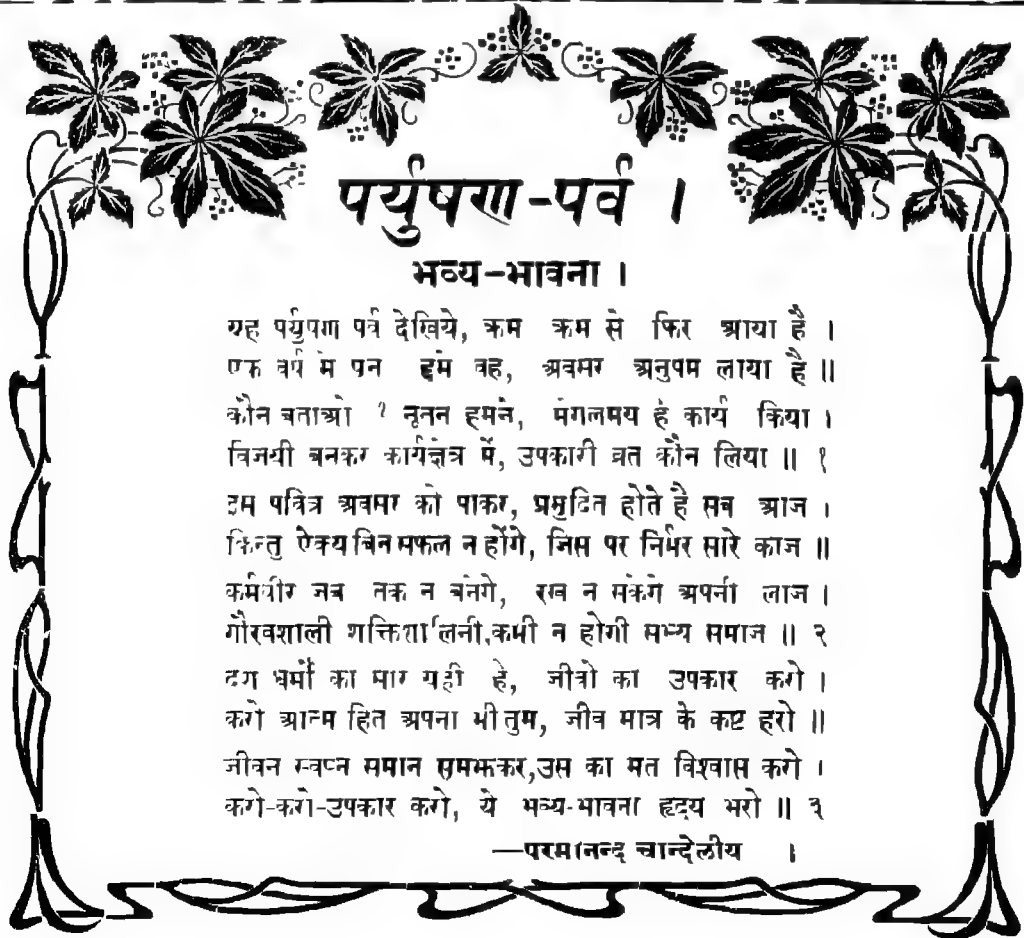 पर्युषण-पर्व ।
भव्य-भावना ।
यह पर्युषण पर्व देखिये, क्रम क्रम से फिर आया है ।
एक वर्ष में पन हमें वह, अवसर अनुपम लाया है ॥
कौन बताओ ? नूतन हमने, मंगलमय है कार्य किया ।
विजयी बनकर कार्यक्षेत्र में, उपकारी व्रत कौन लिया ॥ १
इस पवित्र अवसर को पाकर, प्रमुदित होते है सब आज ।
किन्तु ऐक्य बिन सफल न होंगे, जिस पर निर्भर सारे काज ॥
कर्मवीर जब तक न बनेंगे, रख न सकेंगे अपनी लाज ।
गौरवशाली शक्तिशालनी, कभी न होगी सभ्य समाज ॥ २
दश धर्मों का सार यही है, जीवो का उपकार करो ।
करो आत्म हित अपना भी तुम, जीव मात्र के कष्ट हरो ॥
जीवन स्वप्न समान समझकर, उस का मत विश्वास करो ।
करो-करो-उपकार करो, ये भव्य-भावना हृदय भरो ॥ ३
—परमानन्द चान्देलीय ।